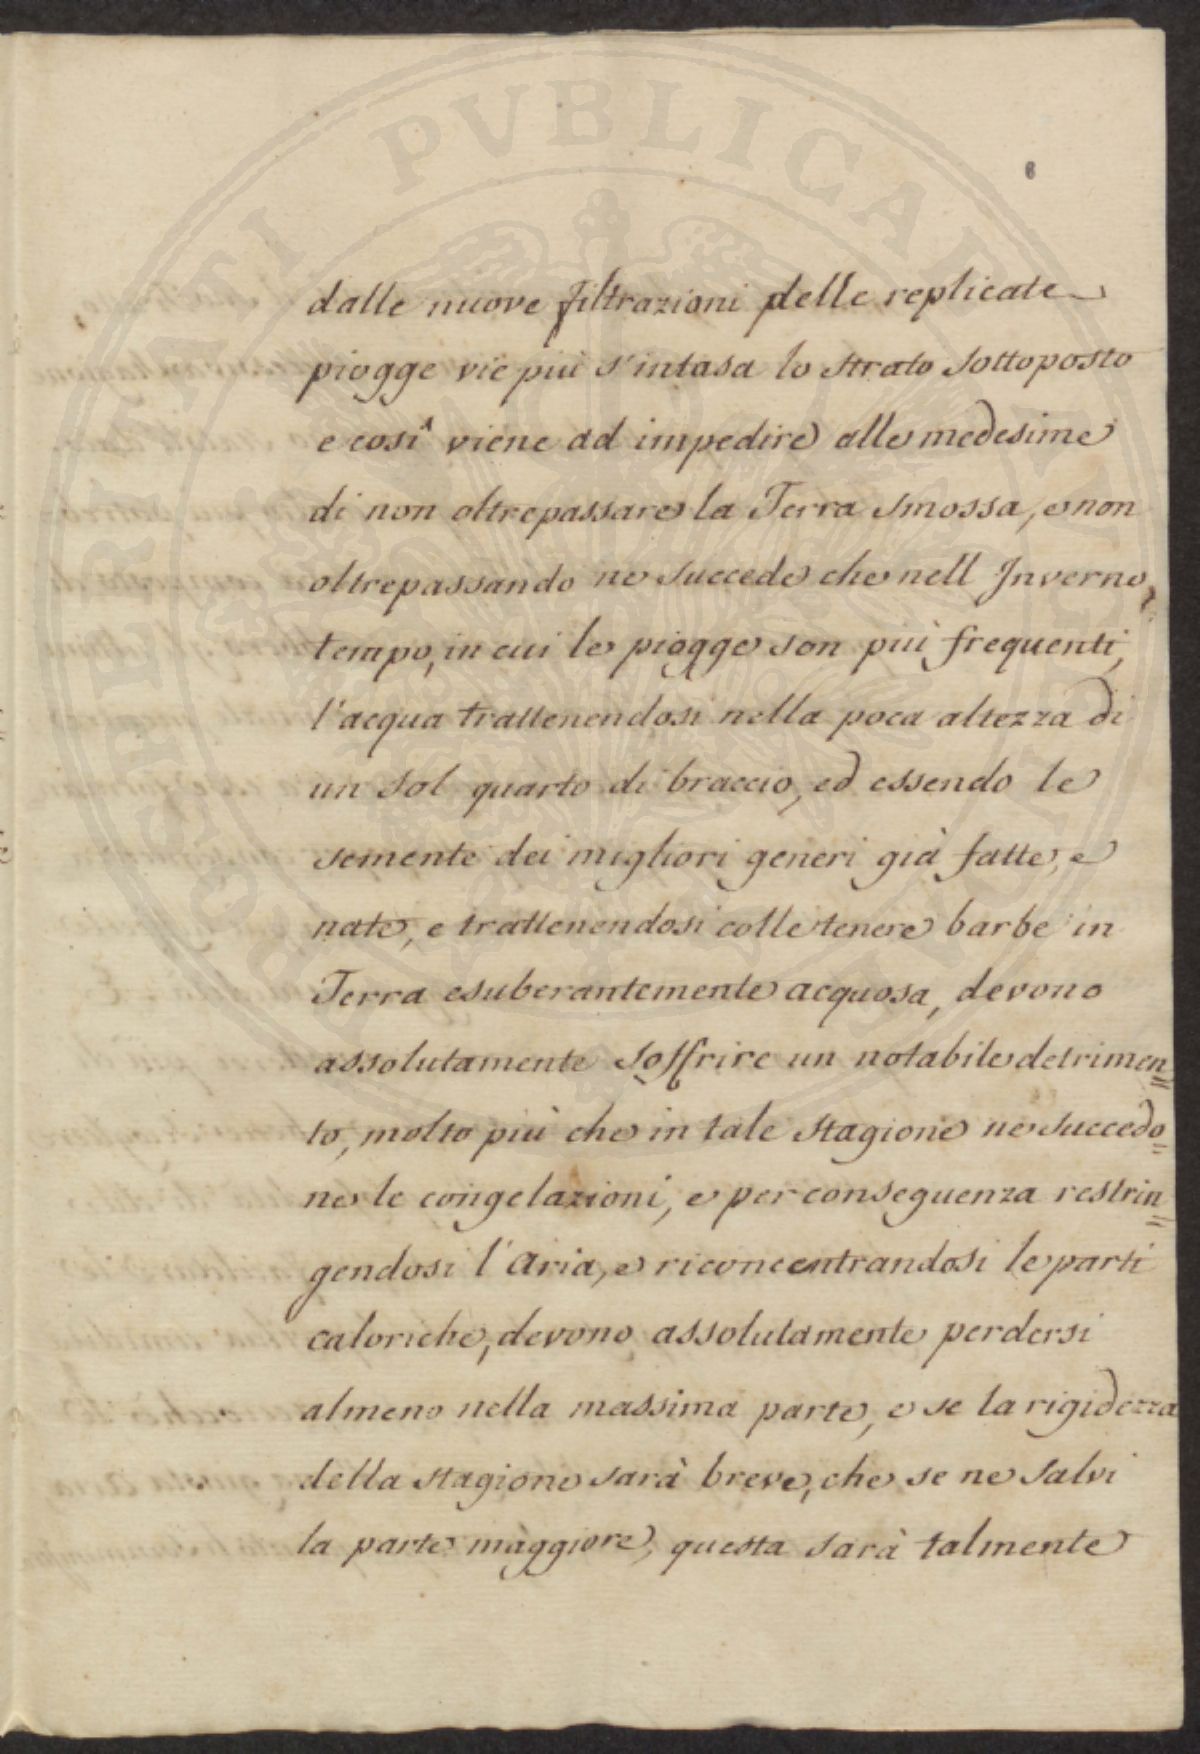 PROSPERITATI PVBLICAE AVGENDAE
dalle nuove filtrazioni delle replicate
piogge vie più s'intasa lo strato sottoposto
e così viene ad impedire alle medesime
di non oltrepassare la Terra smossa, e non
oltrepassando ne succede che nell Inverno,
tempo, in cui le piogge son più frequenti,
l'acqua trattenendosi nella poca altezza di
un sol quarto di braccio, ed essendo le
semente dei migliori generi già fatte, e
nate, e trattenendosi colle tenere barbe in
Terra esuberantemente acquosa, devono
assolutamente soffrire un notabile detrimen=
to, molto più che in tale stagione ne succedo=
no le congelazioni, e per conseguenza restrin=
gendosi l'Aria, e riconcentrandosi le parti
caloriche, devono assolutamente perdersi
almeno nella massima parte, e se la rigidezza
della stagione sarà breve, che se ne salvi
la parte maggiore, questa sarà talmente